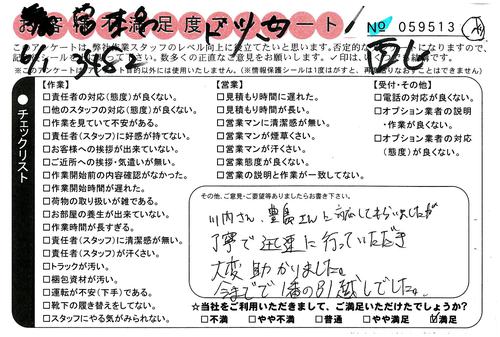 お客様満足度アンケート
No 059513
このアンケートは、弊社作業スタッフのレベル向上に役立てたいと思います。否定的な
数多くの正直なご意見をお願いします。✓印は、
(※このアンケート目的以外には使用いたしません。)(※情報保護シールは1度はがすと、再度貼りなおすことはできません)
チェックリスト
【作業】
□責任者の対応(態度)が良くない。
□他のスタッフの対応(態度)が良くない。
□作業を見ていて不安がある。
□責任者(スタッフ)に好感が持てない。
□お客様への挨拶が出来ていない。
□ご近所への挨拶・気遣いが無い。
□作業開始前の内容確認がなかった。
□作業開始時間が遅れた。
□荷物の取り扱いが雑である。
□お部屋の養生が出来ていない。
□作業時間が長すぎる。
□責任者(スタッフ)に清潔感が無い。
□責任者(スタッフ)が汗くさい。
□トラックが汚い。
□梱包資材が汚い。
□運転が不安(下手)である。
□靴下の履き替えをしてない。
□スタッフにやる気がみられない。
【営業】
□見積もり時間に遅れた。
□見積もり時間が長い。
□営業マンに清潔感が無い。
□営業マンが煙草くさい。
□営業マンが汗くさい。
□営業態度が良くない。
□営業の説明と作業が一致してない。
【受付・その他】
□電話の対応が良くない。
□オプション業者の説明
・作業が良くない。
□オプション業者の対応
(態度)が良くない。
その他、ご意見・ご要望等ありましたらお書き下さい。
川内さん、豊島さんと対応してもらいましたが
丁寧で迅速に行っていただき
大変助かりました。
今までで1番の引越しでした。
☆当社をご利用いただきまして、ご満足いただけたでしょうか?
□不満 □やや不満 □普通 □やや満足 ☑満足